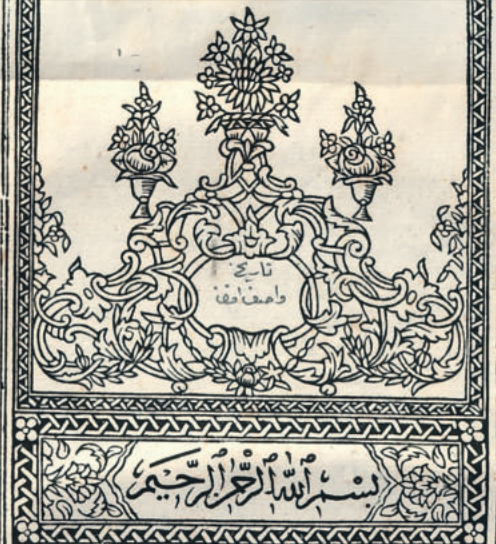 تاريخ
واصف افندی
بسم الله الرحمن الرحيم